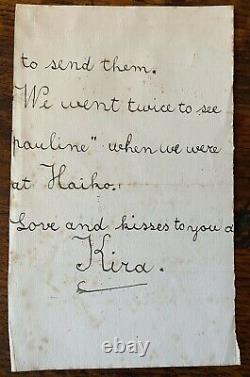 to send them.
We went twice to see
pauline" when we were
at Haiko.
Love and kisses to you a
Kira.
thumbimg.com